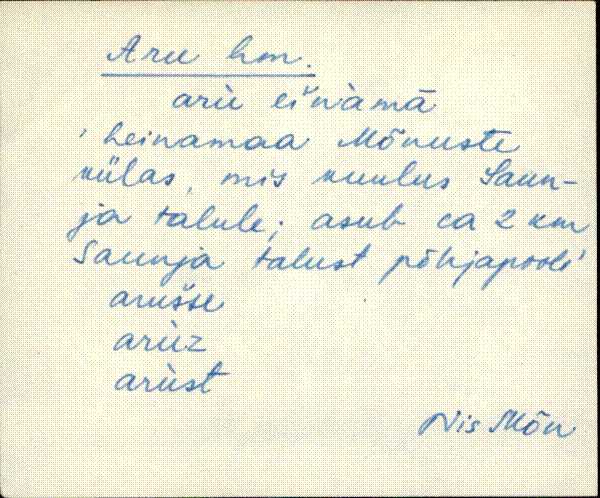 Aru hm.
arù eišnàmā
'heinamaa Mõnuste
külas, mis kuulus Saun-
ja talule; asub ca 2 km
Saunja talust põhjapool'
arušse
arùz
arùst
Nis Mõn